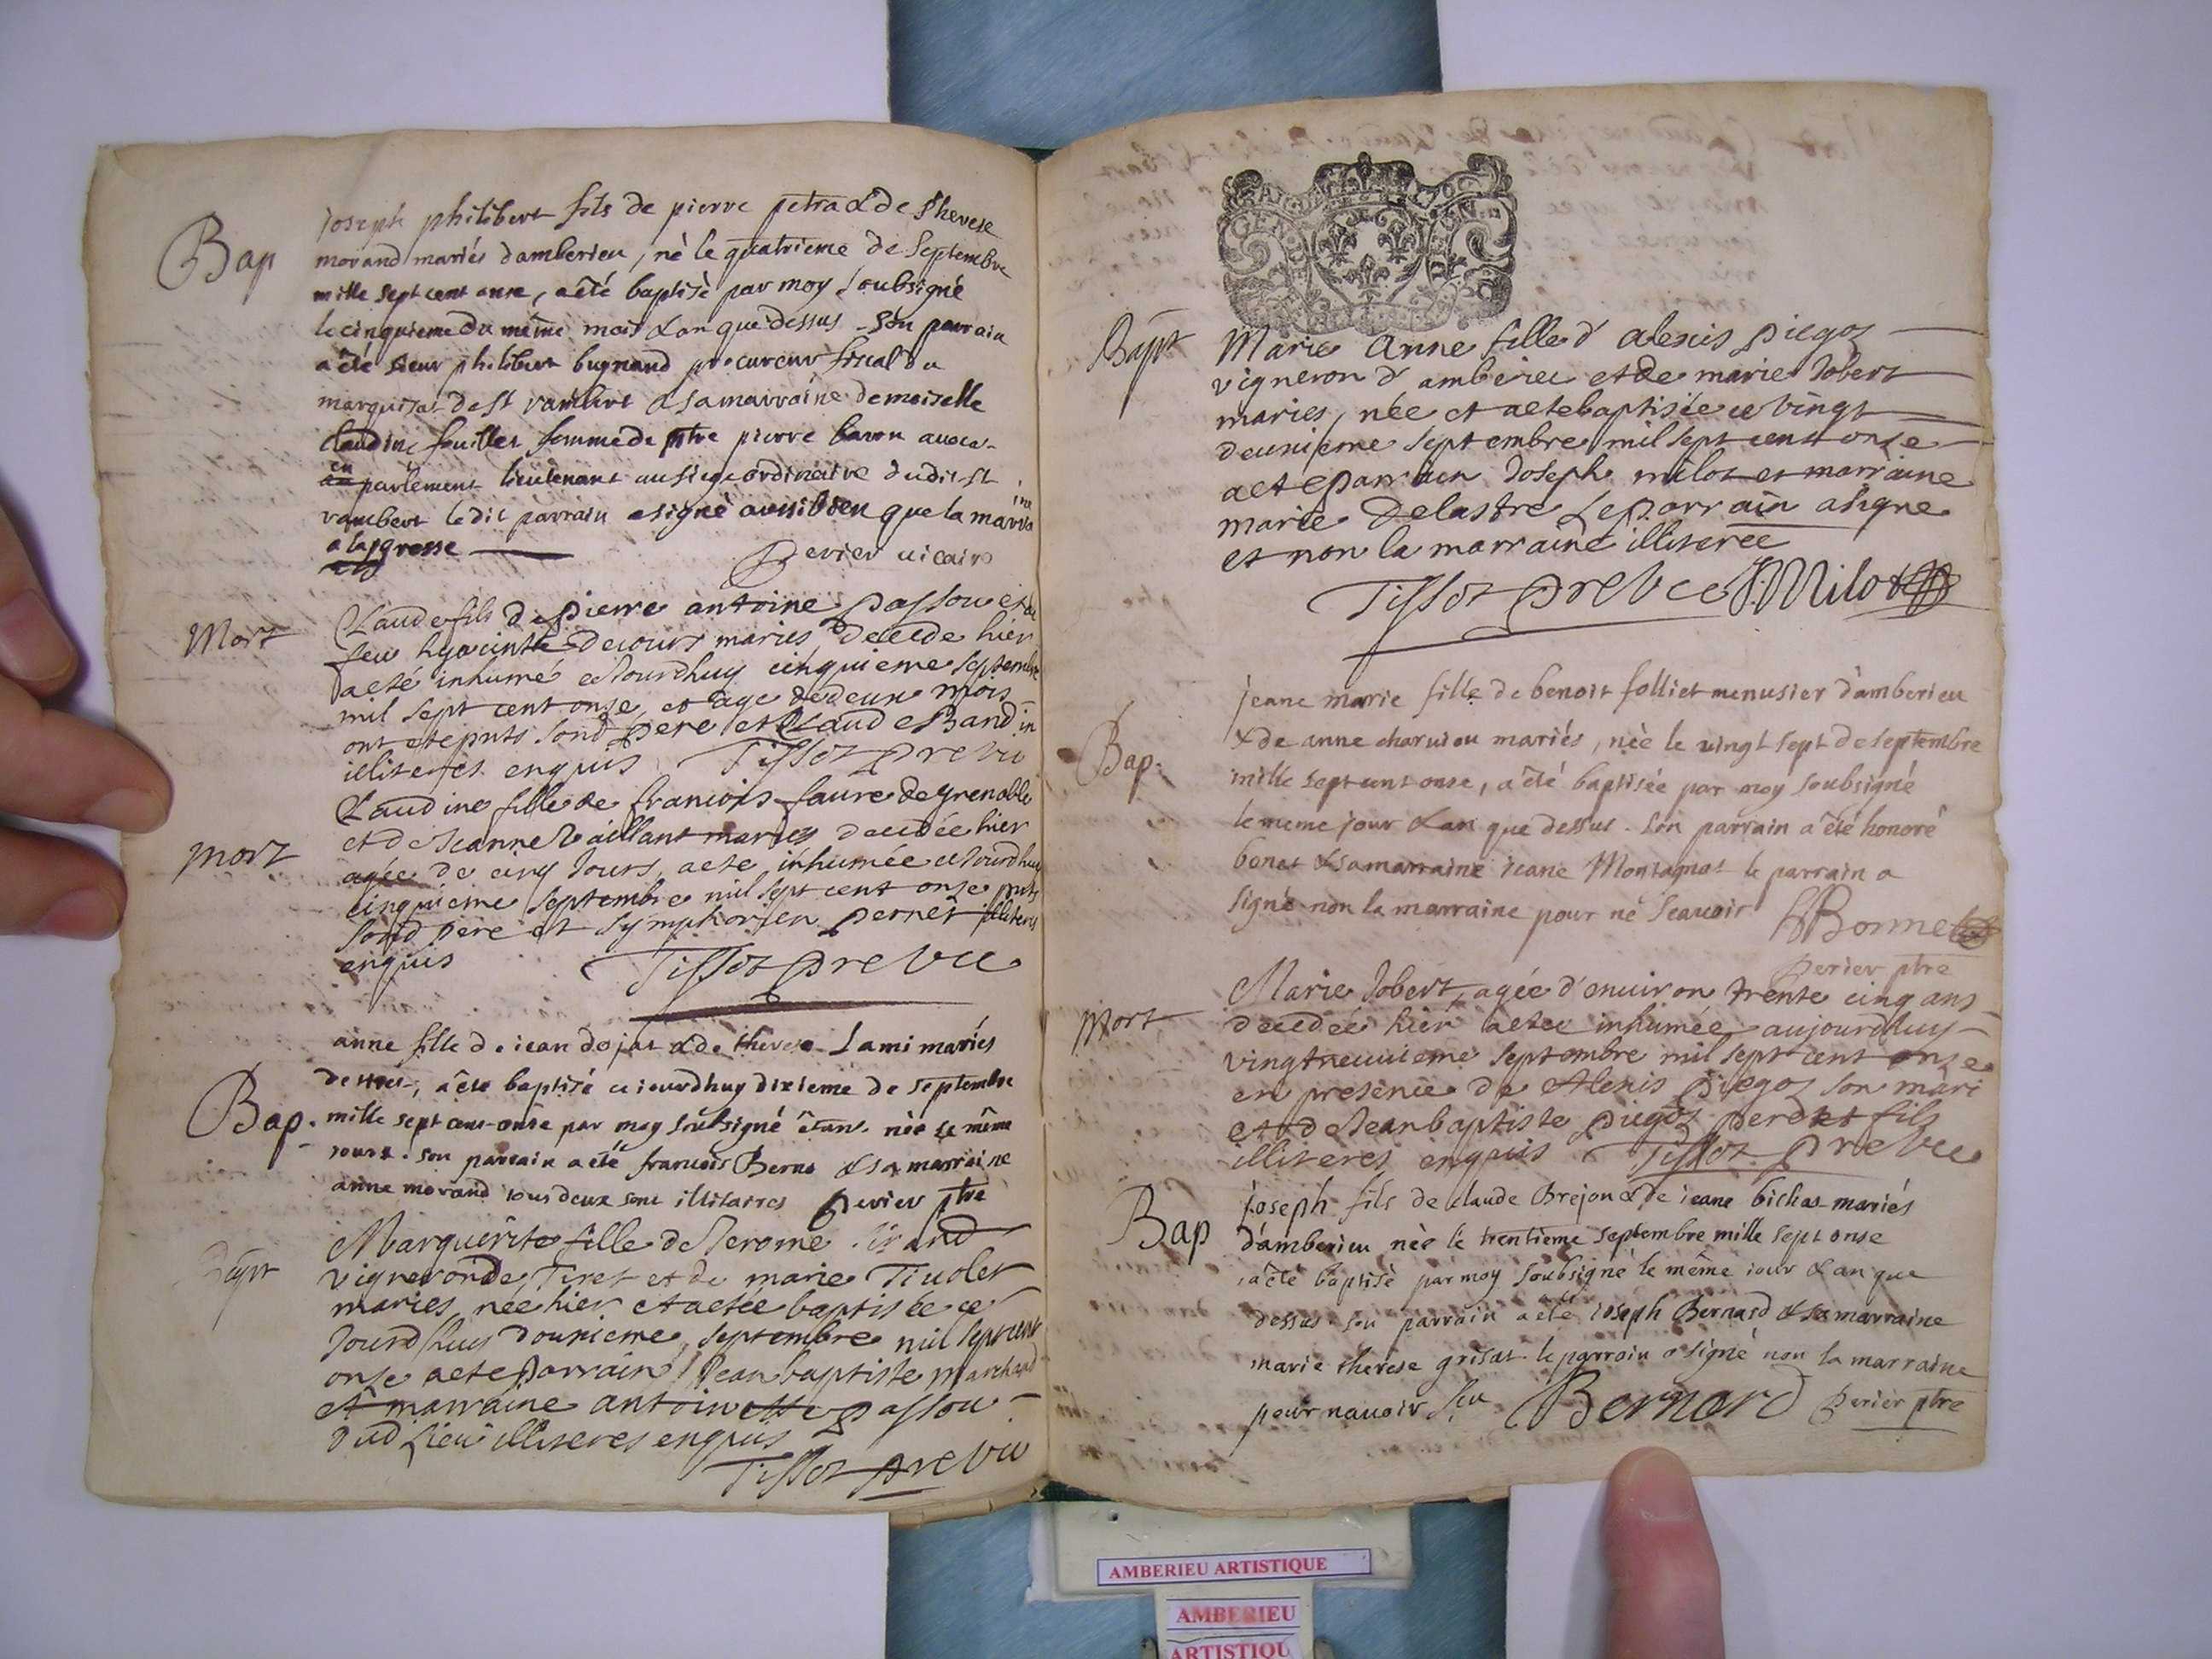 Bap
joseph philibert fils de pierre petra & de therese
morand mariés damberieu, né le quatrieme de septembre
mille sept cent onse, a été baptisé par moy soubsigné
le cinquieme du même mois & an que dessus. Son parrain
a été sieur philibert bugnand procureur fiscal du
marquisat de st rambert & sa marraine demoiselle
claudine feuillet femme de ptre pierre baron avoca
en
au parlement lieutenant au siege ordinaire dudit st
rambert le dit parrain a signé aussi bien que la marra
ine
a la grosse
Perier vicaire
Mort
Claude fils de pierre antoine passou et de
feu hyacinthe decours maries decede hier
a eté inhumé cejourdhuy cinquieme septembre
mil sept cent onse et age de deux mois
ont ete pnts sond pere et Claude Bandin
illiteres enquis Tissot pre vic
mort
Claudine fille de francois faure de grenoble
et de Jeanne Vaillant maries decedée hier
agée de cinq Jours, a ete inhumée cejourdhuy
cinquieme septembre mil sept cent onse pnts
sond pere et symphorien pernet illiteres
enquis Tissot pre vic
Bap.
anne fille de jean dojat & de therese Lami mariés
a été baptisé cejourdhuy dixieme de septembre
mille sept cent onse par moy soubsigné étant née le même
jour. son parrain a été francois Berno & sa marraine
anne morand tous deux sont illitaires Perier ptre
Bapt
Marguerite fille de Jerome Girand
vigneron de Tiret et de marie Tivolet
maries née hier et a eté baptisée ce
Jourdhuy douxieme septembre mil sept cent
onse a ete parrain Jean baptiste marchand
et marraine antoinette passou
dud Lieu illiteres enquis
Tissot pre vic
GEN
Bapt
Marie Anne fille d alexis piegoz
vigneron d amberieu et de marie Jobert
maries, née et a ete baptisée ce vingt
deuxieme septembre mil sept cent onse
a ete parrain Joseph milot et marraine
marie Delastre Le parrain a signe
et non la marraine illiteree
Tissot pre vic J. Milot
Bap.
jeane marie fille de benoit folliet menusier d'amberieu
& de anne charviou mariés, née le vingt sept de septembre
mille sept cent onse, a été baptisée par moy soubsigné
le meme jour & an que dessus. son parrain a été honoré
bonet & sa marraine jeane Montagnat le parrain a
signé non la marraine pour ne scauoir HBonnet
Perier ptre
Mort
Marie Jobert, agée d'enuiron trente cinq ans
decedée hier a etee inhumée aujourdhuy
vingtneuuieme septembre mil sept cent onse
en presence de Alexis piegoz son mari
et de Jean baptiste piegoz pere et fils
illiteres enquis Tissot pre vic
Bap
joseph fils de claude Brejon & de jeane bichat mariés
d'amberieu née le trentieme septembre mille sept onse
a été baptisé par moy soubsigné le même jour & an que
dessus. son parrain a été joseph Bernard & sa marraine
marie therese grisat le parrain a signé non la marraine
pour nauoir sçu Bernard Perier ptre
AMBERIEU ARTISTIQUE
AMBERIEU
ARTISTIQU